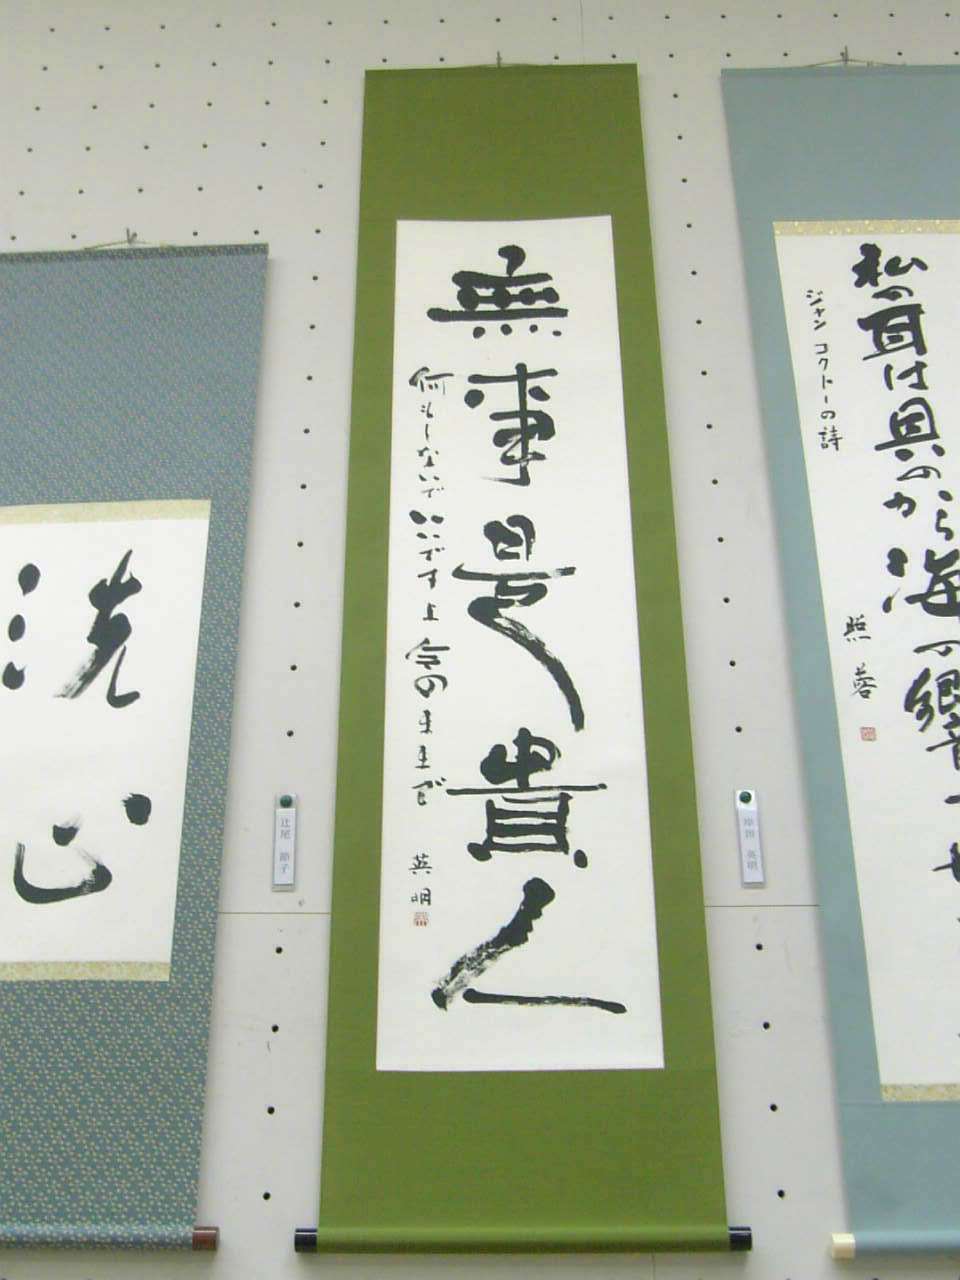 洗心
辻尾 節子
無事是貴人
何もしないでいいですよ 今のままで
英明
岸田 英明
私の耳は貝のから
海の響
ジャン コクトーの詩
照蓉